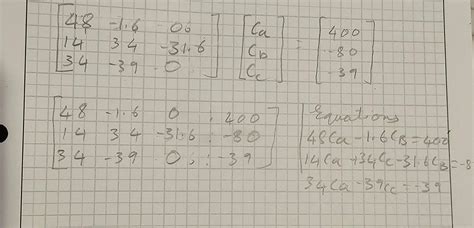 [48 -1.6 06] [Ca] = [400]
[14 34 -31.6] [Cb] [-80]
[34 -39 0] [Cc] [-39]
[48 -1.6 0 : 400]
[14 34 -31.6 : -80]
[34 -39 0, : -39]
Equations
48Ca - 1.6CB = 400
14Ca + 34Cc - 31.6CB = -8
34Ca - 39Cc = -39